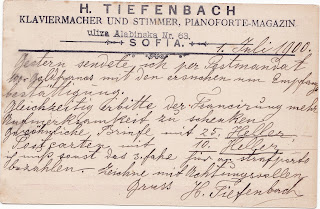 H. TIEFENBACH
KLAVIERMACHER UND STIMMER, PIANOFORTE-MAGAZIN.
ulitza Alabinska Nr. 63.
SOFIA.
1. Juli 1900.
Gestern sendete ich per Postmandat
mit den ersuchen um Empfang
bestättigung.
Gleichzeitig erbitte der Francirung mehr
Aufmerksamkeit zu schenken!
Gewöhnliche Briefe mit 25. Heller
Postkarten mit 10. Heller.
ich muß sonst das 3. fache für
bezahlen. Zeichne mit Achtungsvollen
Gruss H. Tiefenbach